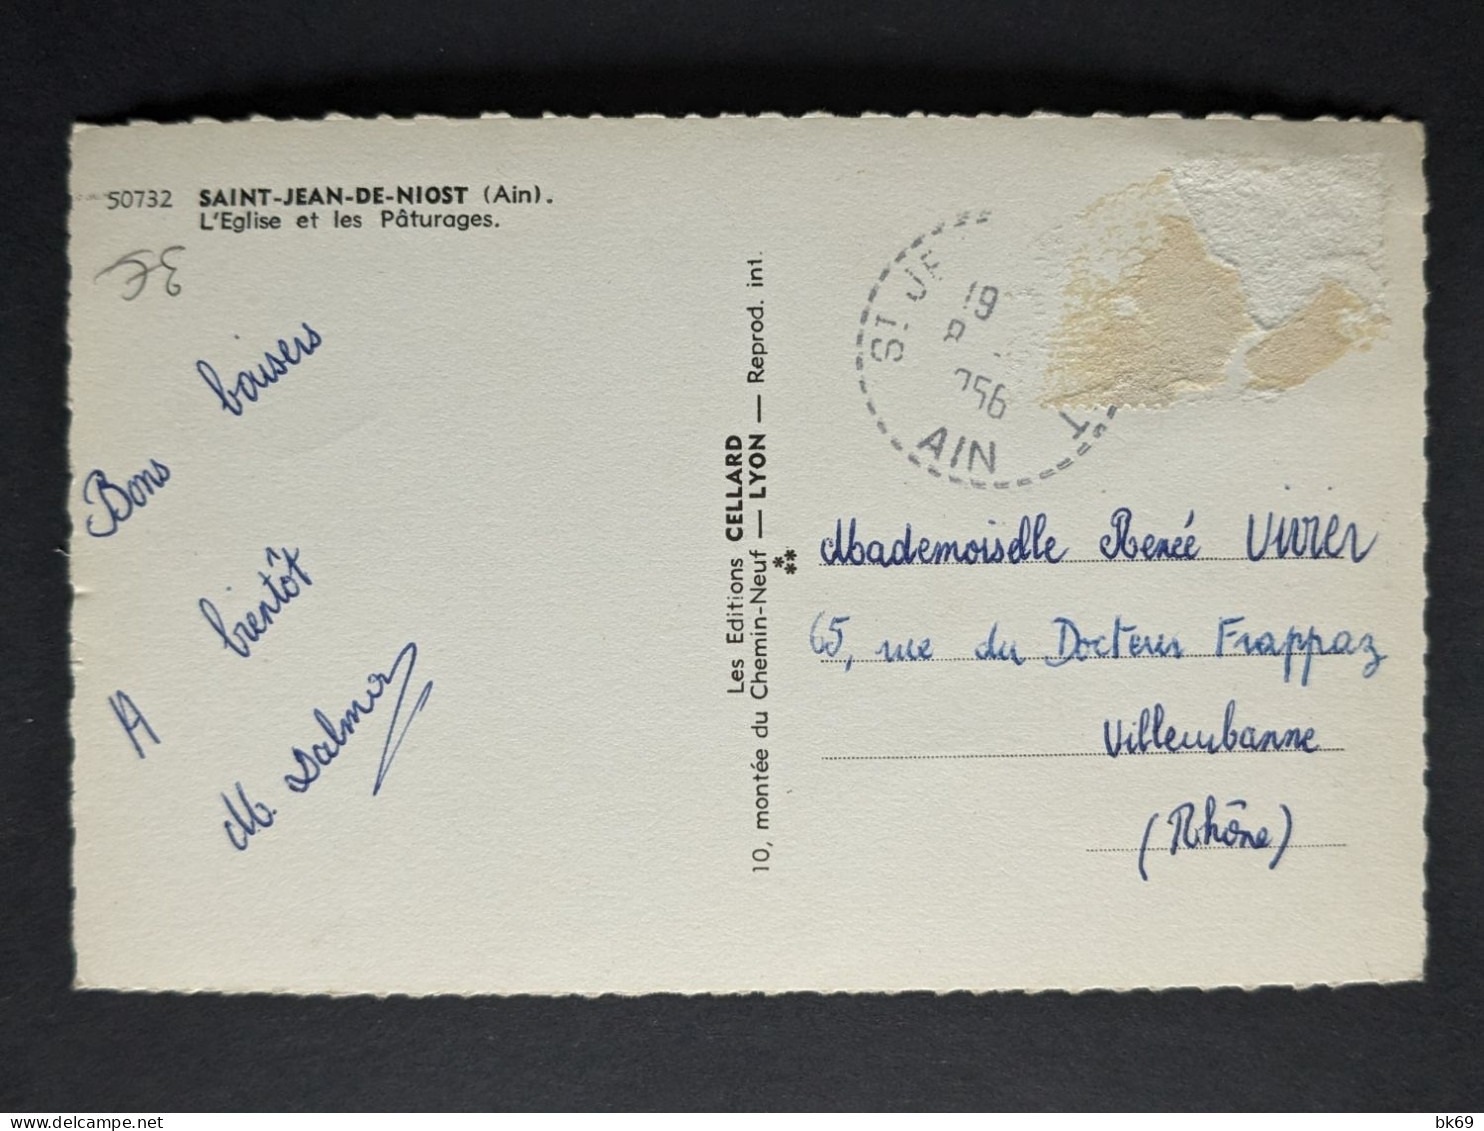 50732 SAINT-JEAN-DE-NIOST (Ain).
L'Eglise et les Pâturages.
3€
Bons baisers
A bientôt
M. Dalmor
Les Editions CELLARD
10, montée du Chemin-Neuf — LYON — Reprod. int.
ST JE
19
8
956
AIN
T
Mademoiselle Renée Vivier
65, rue du Docteur Frappaz
Villeurbanne
(Rhône)
delcampe.net
bk69